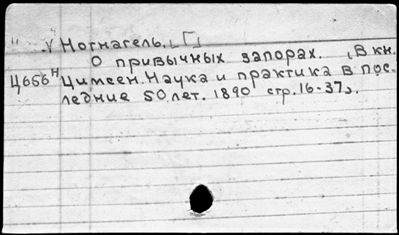 Нотнагель, [Г]
О привычных запорах. (В кн.
Ц656н Цимсен. Наука и практика в пос-
ледние 50 лет. 1890 стр. 16-37).